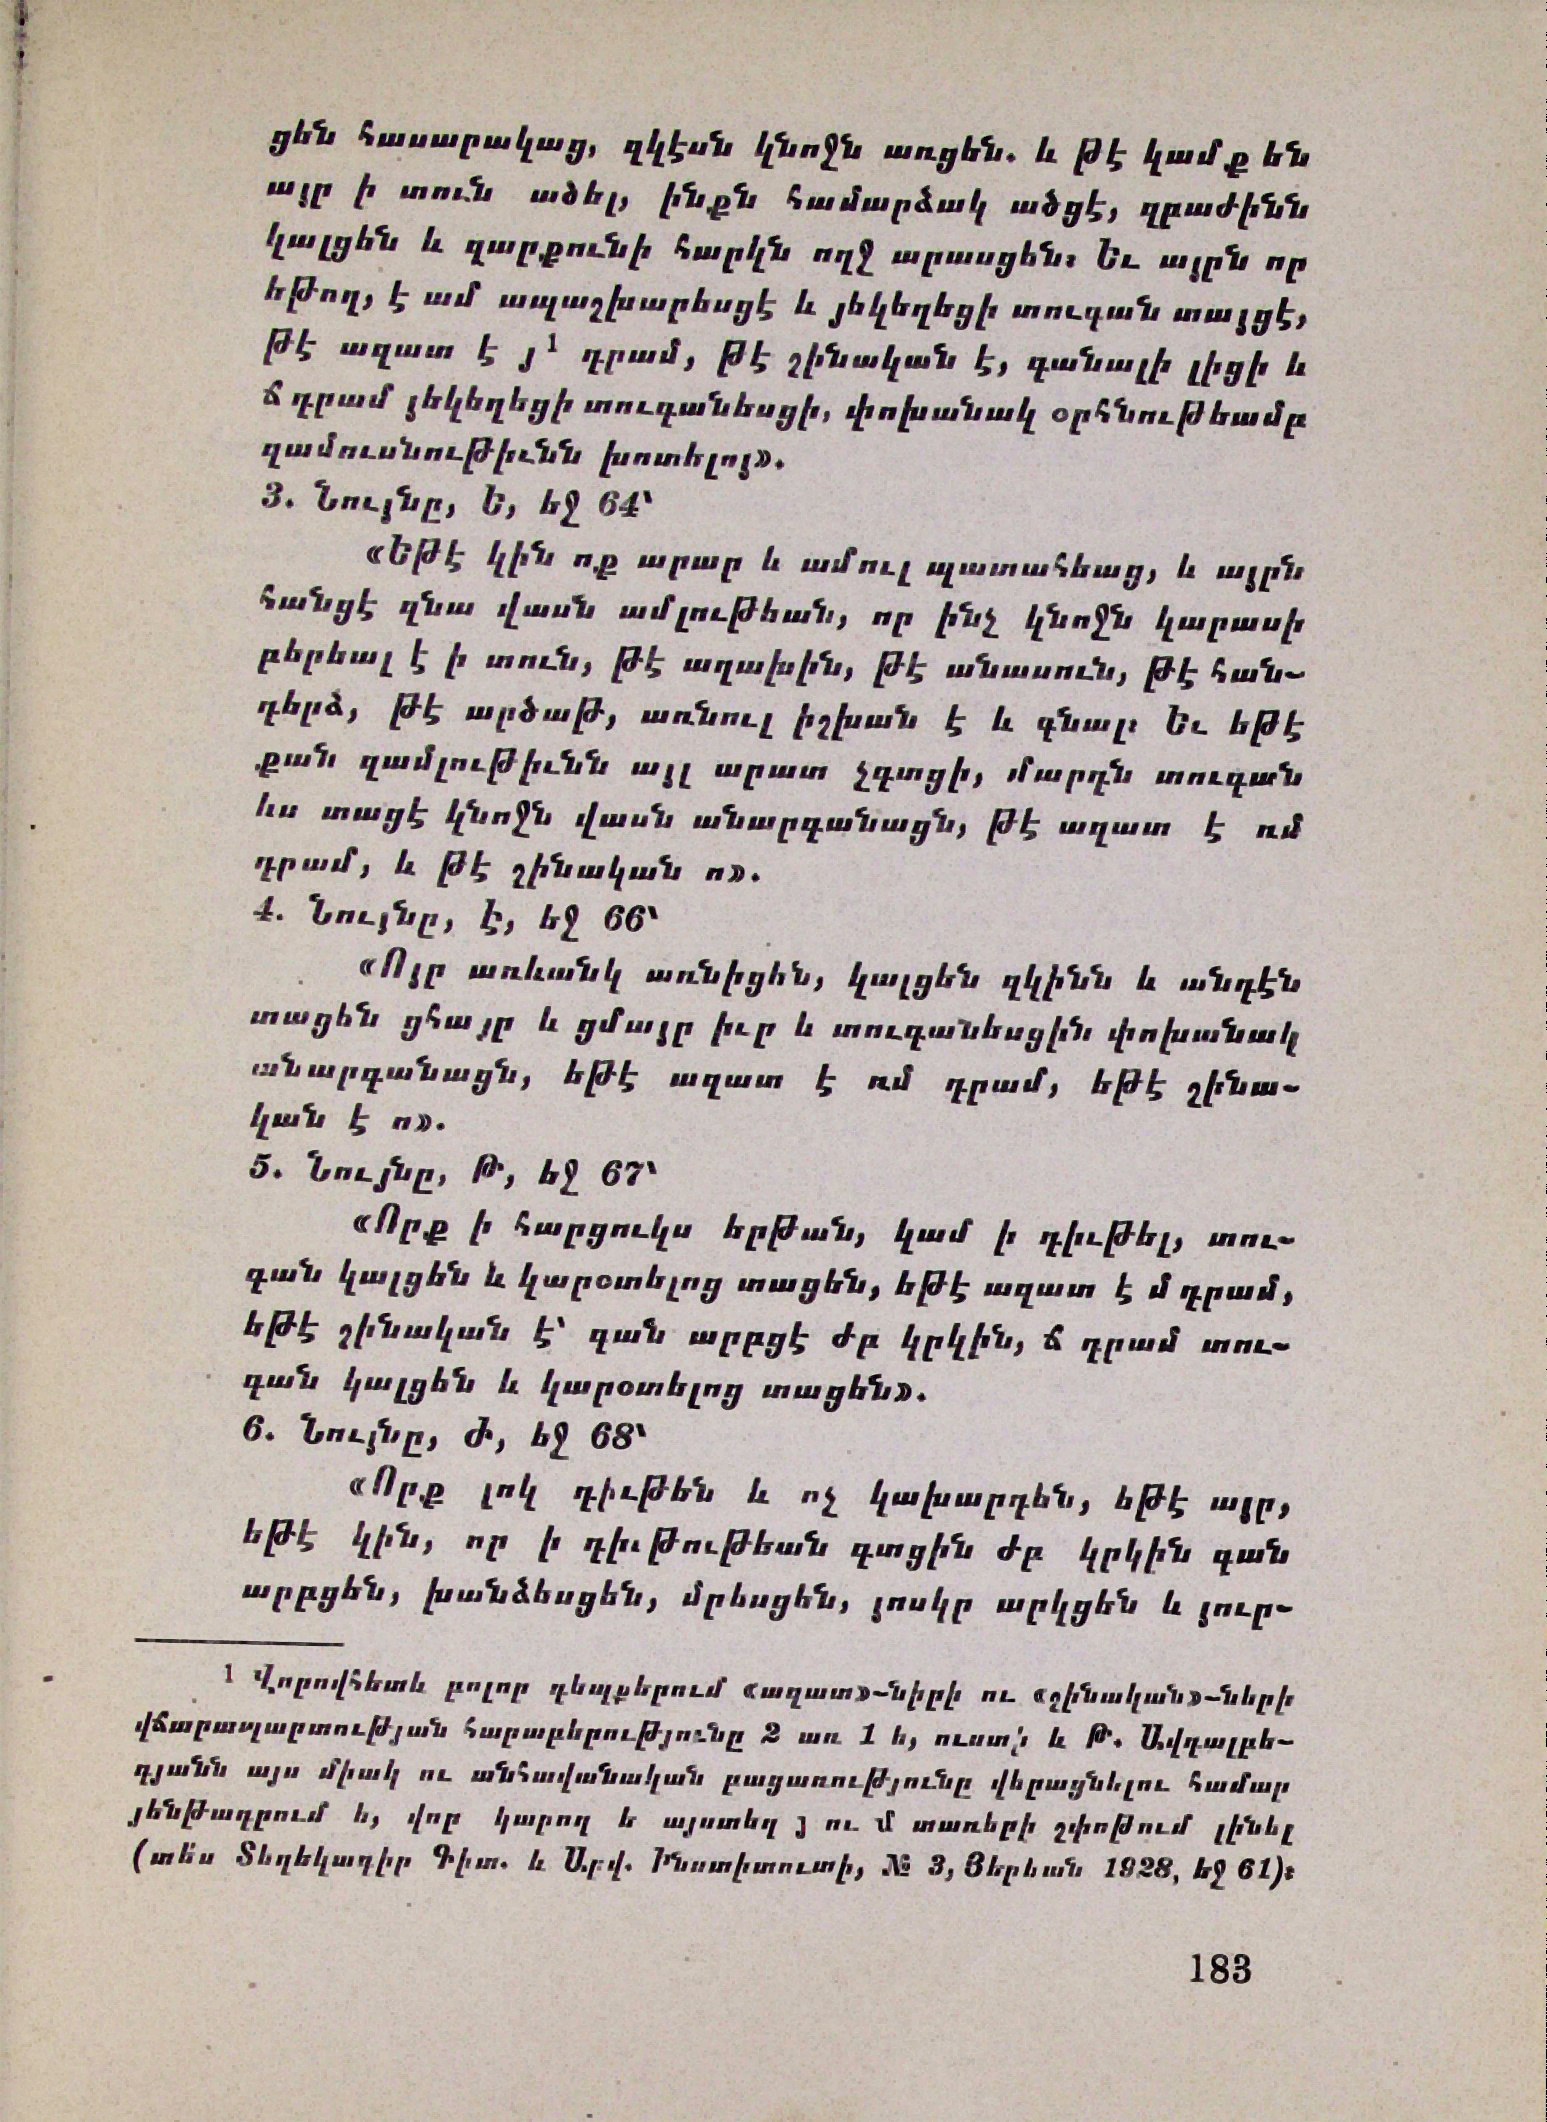 ցեն հասարակաց, զկէսն կնոջն առցեն. և թէ կամք են
այր ի տուն ածել, ինքն համարձակ ածցէ, զբաժինն
կալցեն և զարքունի հարկն ողջ արասցեն։ Եւ այրն որ
եթող, է ամ ապաշխարեսցէ և յեկեղեցի տուգան տայցէ,
թէ ազատ է յ¹ դրամ, թէ շինական է, գանալի լիցի և
ճ դրամ յեկեղեցի տուգանեսցի, փոխանակ օրհնութեամբ
զամուսնութիւնն խոտելոյ».
3. Նույնը, Ե, եջ 64՝
«Եթէ կին ոք արար և ամուլ պատահեաց, և այրն
հանցէ զնա վասն ամլութեան, որ ինչ կնոջն կարասի
բերեալ է ի տուն, թէ աղախին, թէ անասուն, թէ հան-
դերձ, թէ արծաթ, առնուլ իշխան է և գնալ։ Եւ եթէ
քան զամլութիւնն այլ արատ չգտցի, մարդն տուգան
ևս տացէ կնոջն վասն անարգանացն, թէ ազատ է ռմ
դրամ, և թէ շինական ո».
4. Նույնը, Է, եջ 66՝
«Ոյր առևանկ առնիցեն, կալցեն զկինն և անդէն
տացեն ցհայր և ցմայր իւր և տուգանեսցին փոխանակ
անարգանացն, եթէ ազատ է ռմ դրամ, եթէ շինա-
կան է ո».
5. Նույնը, Թ, եջ 67՝
«Որք ի հարցուկս երթան, կամ ի դիւթել, տու-
գան կալցեն և կարօտելոց տացեն, եթէ ազատ է մ դրամ,
եթէ շինական է՝ գան արբցէ ժբ կրկին, ճ դրամ տու-
գան կալցեն և կարօտելոց տացեն».
6. Նույնը, Ժ, եջ 68՝
«Որք լոկ դիւթեն և ոչ կախարդեն, եթէ այր,
եթէ կին, որ ի դիւթութեան գտցին ժբ կրկին գան
արբցեն, խանձեսցեն, մրեսցեն, յոսկր արկցեն և յուր-
¹ Վորովհետև բոլոր դեպքերում «ազատ»-նիրի ու «շինական»-ների
վճարապարտության հարաբերությունը 2 առ 1 է, ուստի և Թ. Ավդալբե-
գյանն այս միակ ու անհավանական բացառությունը վերացնելու համար
յենթադրում ե, վոր կարող ե այստեղ յ ու մ տառերի շփոթում լինել
(տե՛ս Տեղեկագիր Գիտ. և Արվ. Ինստիտուտի, № 3, Յերևան 1928, եջ 61)։
183